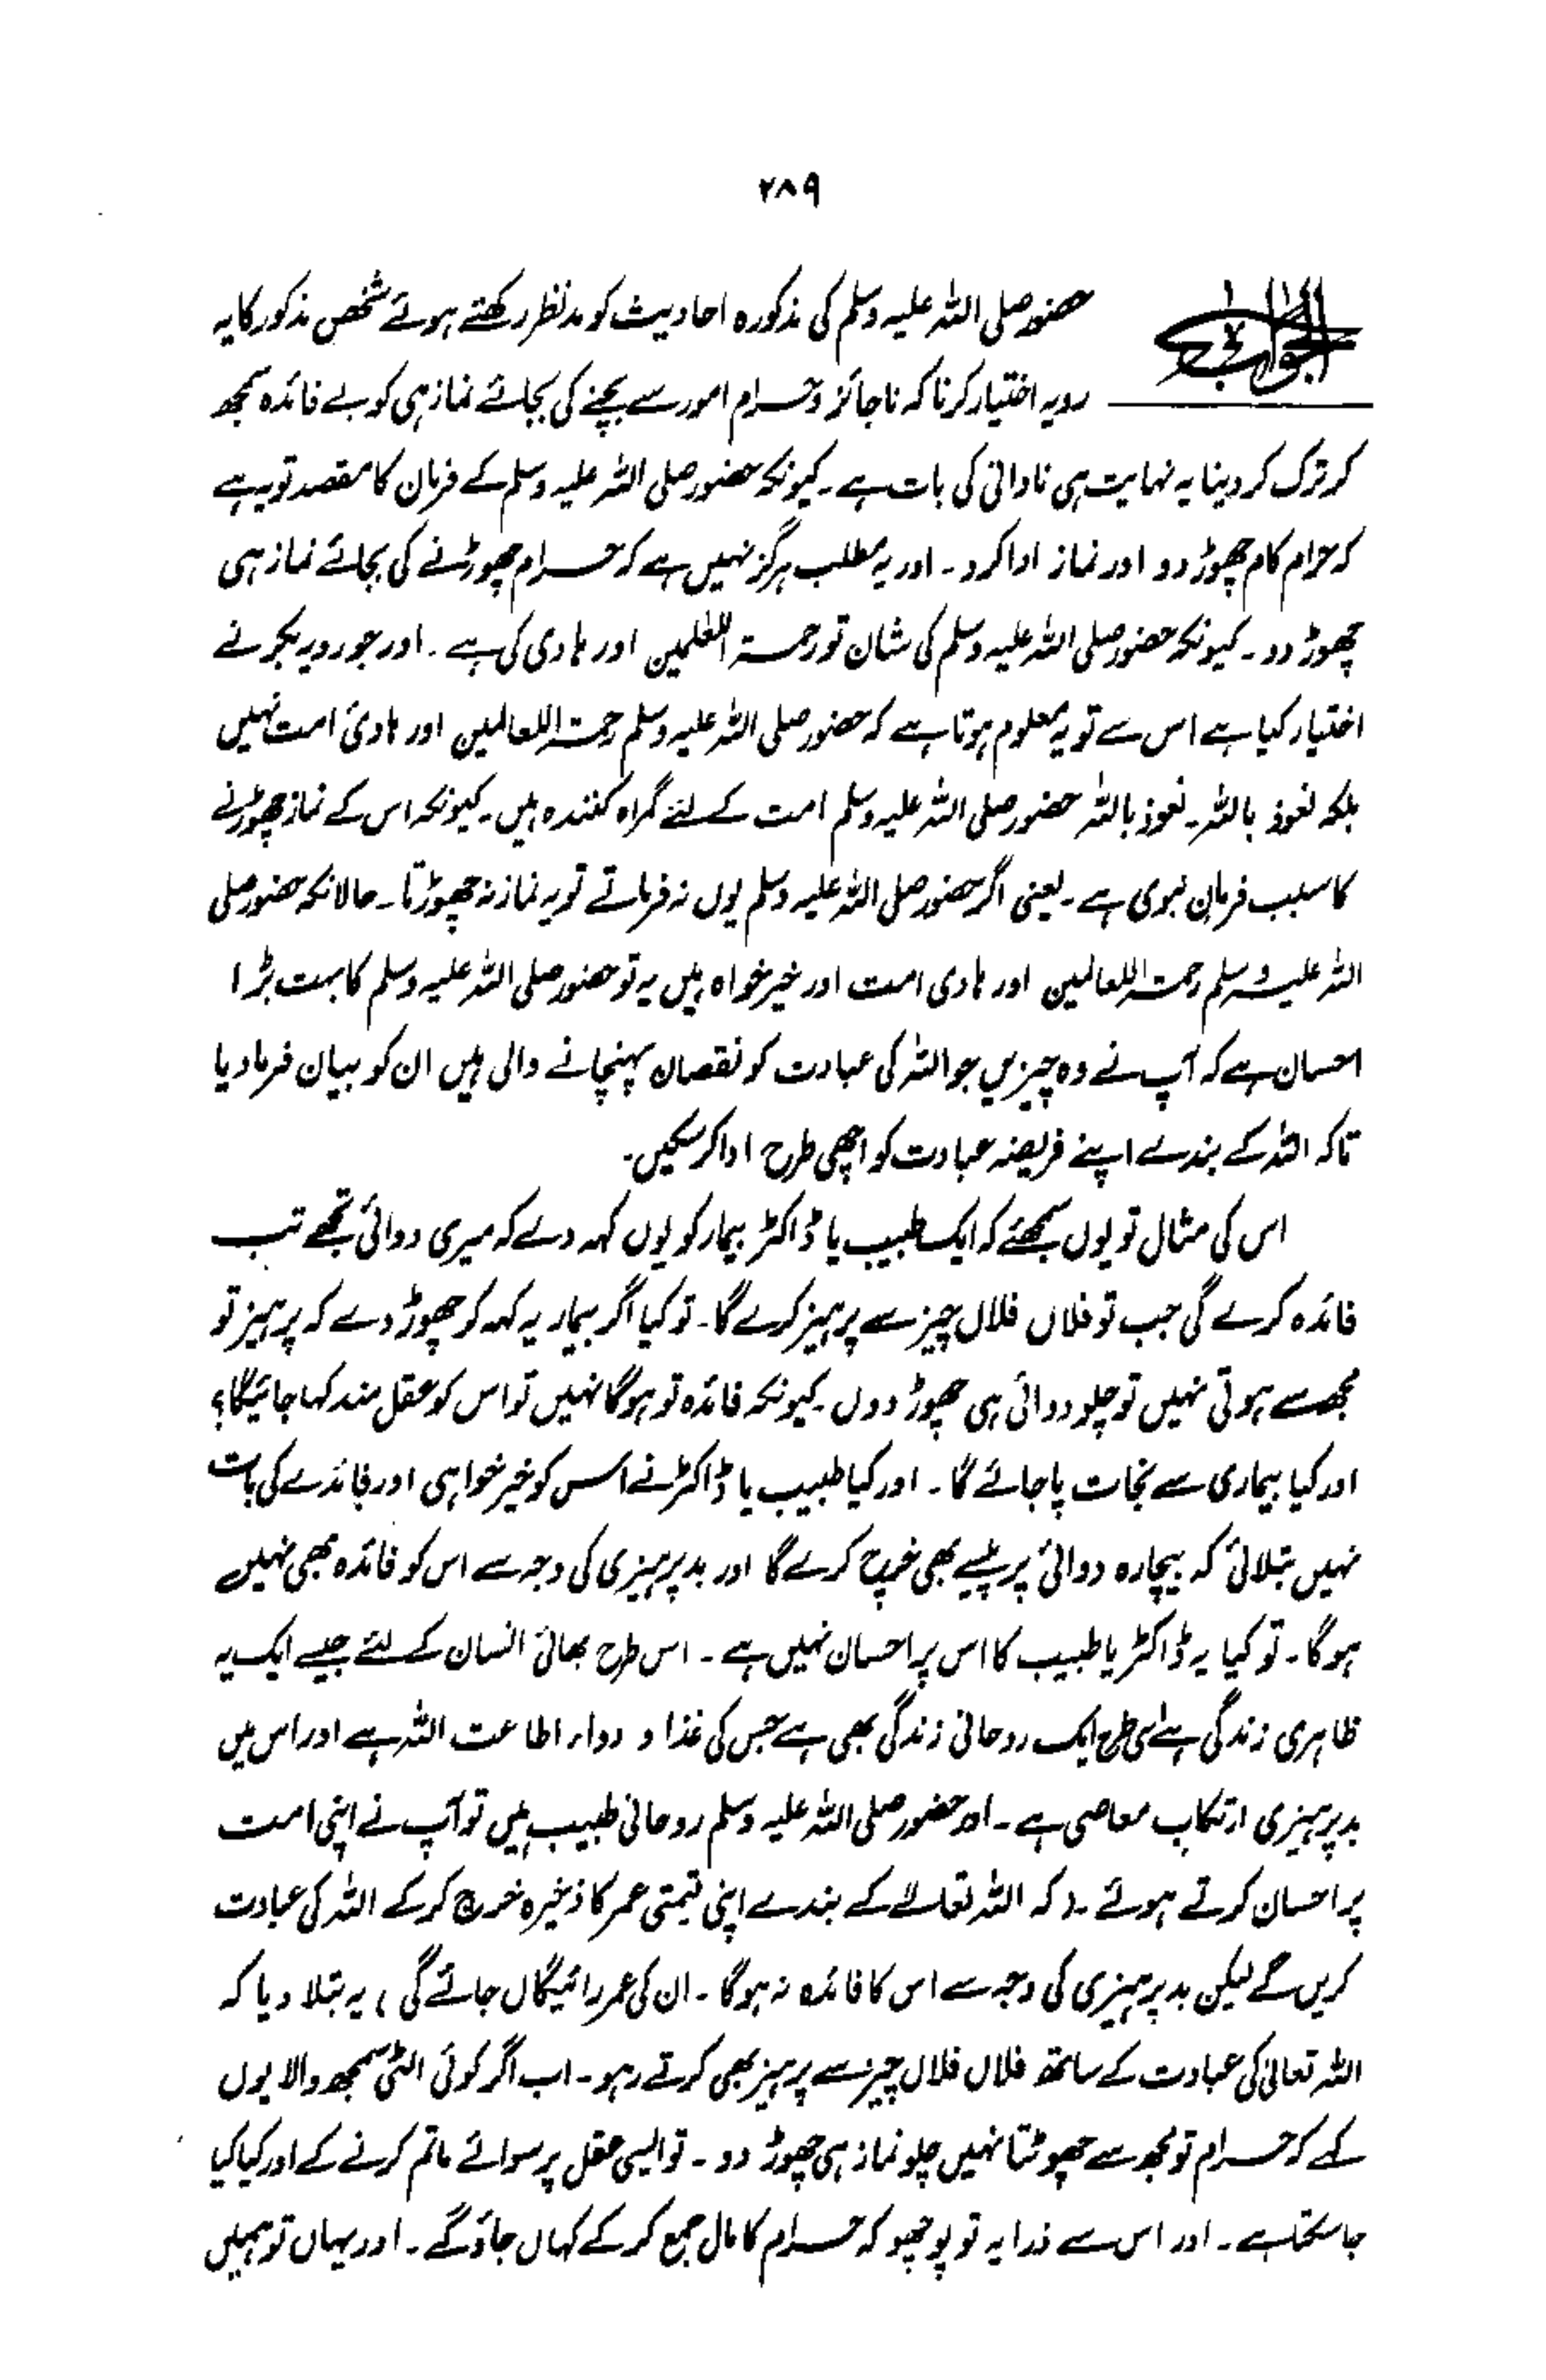 ۲۸۹
الجواب
حضور صلی اللہ علیہ وسلم کی مذکورہ احادیث کو مدنظر رکھتے ہوئے شخص مذکور کا یہ
رویہ اختیار کرنا کہ ناجائز و حرام امور سے بچنے کی بجائے نماز ہی کو بے فائدہ سمجھ
کر ترک کر دینا یہ نہایت ہی نادانی کی بات ہے۔ کیونکہ حضور صلی اللہ علیہ وسلم کے فرمان کا مقصد تو یہ ہے
کہ حرام کام چھوڑ دو اور نماز ادا کرو۔ اور یہ مطلب ہرگز نہیں ہے کہ حرام چھوڑنے کی بجائے نماز ہی
چھوڑ دو۔ کیونکہ حضور صلی اللہ علیہ وسلم کی شان تو رحمۃ اللعلمین اور ہادی کی ہے۔ اور جو رویہ بکر نے
اختیار کیا ہے اس سے تو یہ معلوم ہوتا ہے کہ حضور صلی اللہ علیہ وسلم رحمۃ اللعالمین اور ہادئ امت نہیں
بلکہ نعوذ باللہ۔ نعوذ باللہ حضور صلی اللہ علیہ وسلم امت کے لئے گمراہ کنندہ ہیں۔ کیونکہ اس کے نماز چھوڑنے
کا سبب فرمان نبوی ہے۔ یعنی اگر حضور صلی اللہ علیہ وسلم یوں نہ فرماتے تو یہ نماز نہ چھوڑتا۔ حالانکہ حضور صلی
اللہ علیہ وسلم رحمۃ اللعالمین اور ہادی امت اور خیر خواہ ہیں یہ تو حضور صلی اللہ علیہ وسلم کا بہت بڑا
احسان ہے کہ آپ نے وہ چیزیں جو اللہ کی عبادت کو نقصان پہنچانے والی ہیں ان کو بیان فرما دیا
تاکہ اللہ کے بندے اپنے فریضہ عبادت کو اچھی طرح ادا کر سکیں۔
اس کی مثال تو یوں سمجھئے کہ ایک طبیب یا ڈاکٹر بیمار کو یوں کہہ دے کہ میری دوائی تجھے تب
فائدہ کرے گی جب تو فلاں فلاں چیز سے پرہیز کرے گا۔ تو کیا اگر بیمار یہ کہہ کو چھوڑ دے کہ پرہیز تو
مجھ سے ہوتی نہیں تو چلو دوائی ہی چھوڑ دوں۔ کیونکہ فائدہ تو ہو گا نہیں تو اس کو عقل مند کہا جائیگا؟
اور کیا بیماری سے نجات پا جائے گا۔ اور کیا طبیب یا ڈاکٹر نے اس کو خیر خواہی اور فائدے کی بات
نہیں بتلائی کہ بیچارہ دوائی پر پیسے بھی خرچ کرے گا اور بدپرہیزی کی وجہ سے اس کو فائدہ بھی نہیں
ہو گا۔ تو کیا یہ ڈاکٹر یا طبیب کا اس پر احسان نہیں ہے۔ اس طرح بھائی انسان کے لئے جیسے ایک یہ
ظاہری زندگی ہے اسی طرح ایک روحانی زندگی بھی ہے جس کی غذا و دواء اطاعت اللہ ہے اور اس میں
بدپرہیزی ارتکاب معاصی ہے۔ اور حضور صلی اللہ علیہ وسلم روحانی طبیب ہیں تو آپ نے اپنی امت
پر احسان کرتے ہوئے۔ (کہ اللہ تعالےٰ کے بندے اپنی قیمتی عمر کا ذخیرہ خرچ کر کے اللہ کی عبادت
کریں گے لیکن بدپرہیزی کی وجہ سے اس کا فائدہ نہ ہو گا۔ ان کی عمر رائیگاں جائے گی) یہ بتلا دیا کہ
اللہ تعالیٰ کی عبادت کے ساتھ فلاں فلاں چیز سے پرہیز بھی کرتے رہو۔ اب اگر کوئی الٹی سمجھ والا یوں
کہے کہ حرام تو مجھ سے چھوٹتا نہیں چلو نماز ہی چھوڑ دو۔ تو ایسی عقل پر سوائے ماتم کرنے کے اور کیا کیا
جا سکتا ہے۔ اور اس سے ذرا یہ تو پوچھو کہ حرام کا مال جمع کر کے کہاں جاؤ گے۔ اور یہاں تو ہمیں